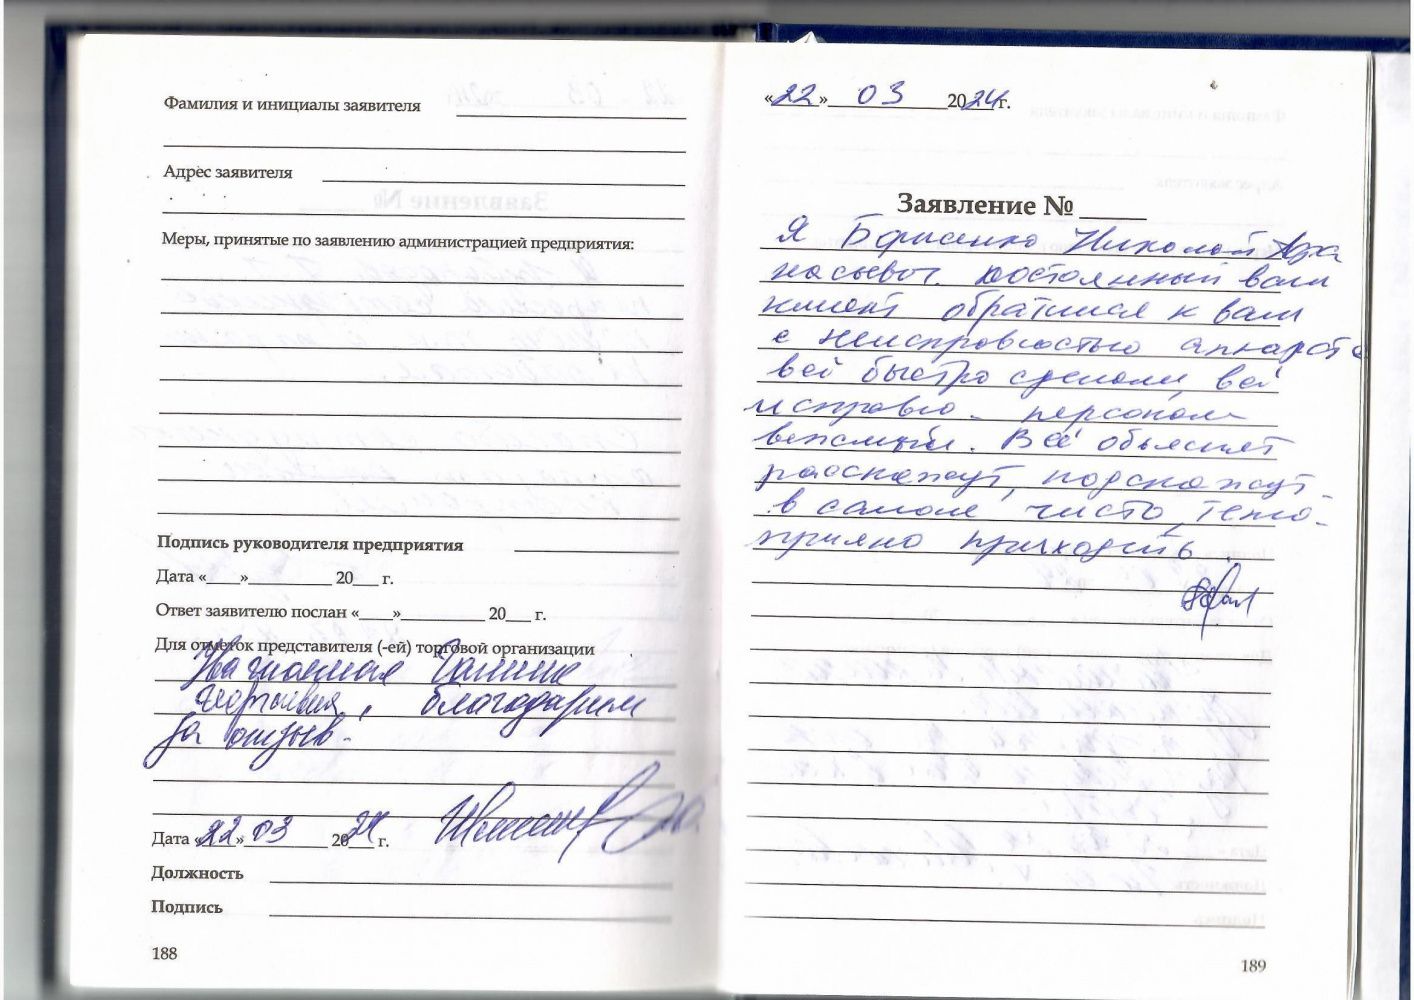 Фамилия и инициалы заявителя
Адрес заявителя
Меры, принятые по заявлению администрацией предприятия:
Подпись руководителя предприятия
Дата «___»_________ 20___ г.
Ответ заявителю послан «___»_________ 20___ г.
Для отметок представителя (-ей) торговой организации
Уважаемая Галина
Георгиевна, благодарим
за отзыв.
Дата «22» 03 2024 г.
Должность
Подпись
188
«22» 03 2024 г.
Заявление № _____
Я Борисенко Николай Афа
насьевич. постоянный ваш
клиент обратился к вам
с неисправностью аппарата
всё быстро сделали, всё
исправно - персонал
вежливый. Всё объяснят
расскажут, подскажут -
в салоне, чисто, тепло -
приятно приходить.
189